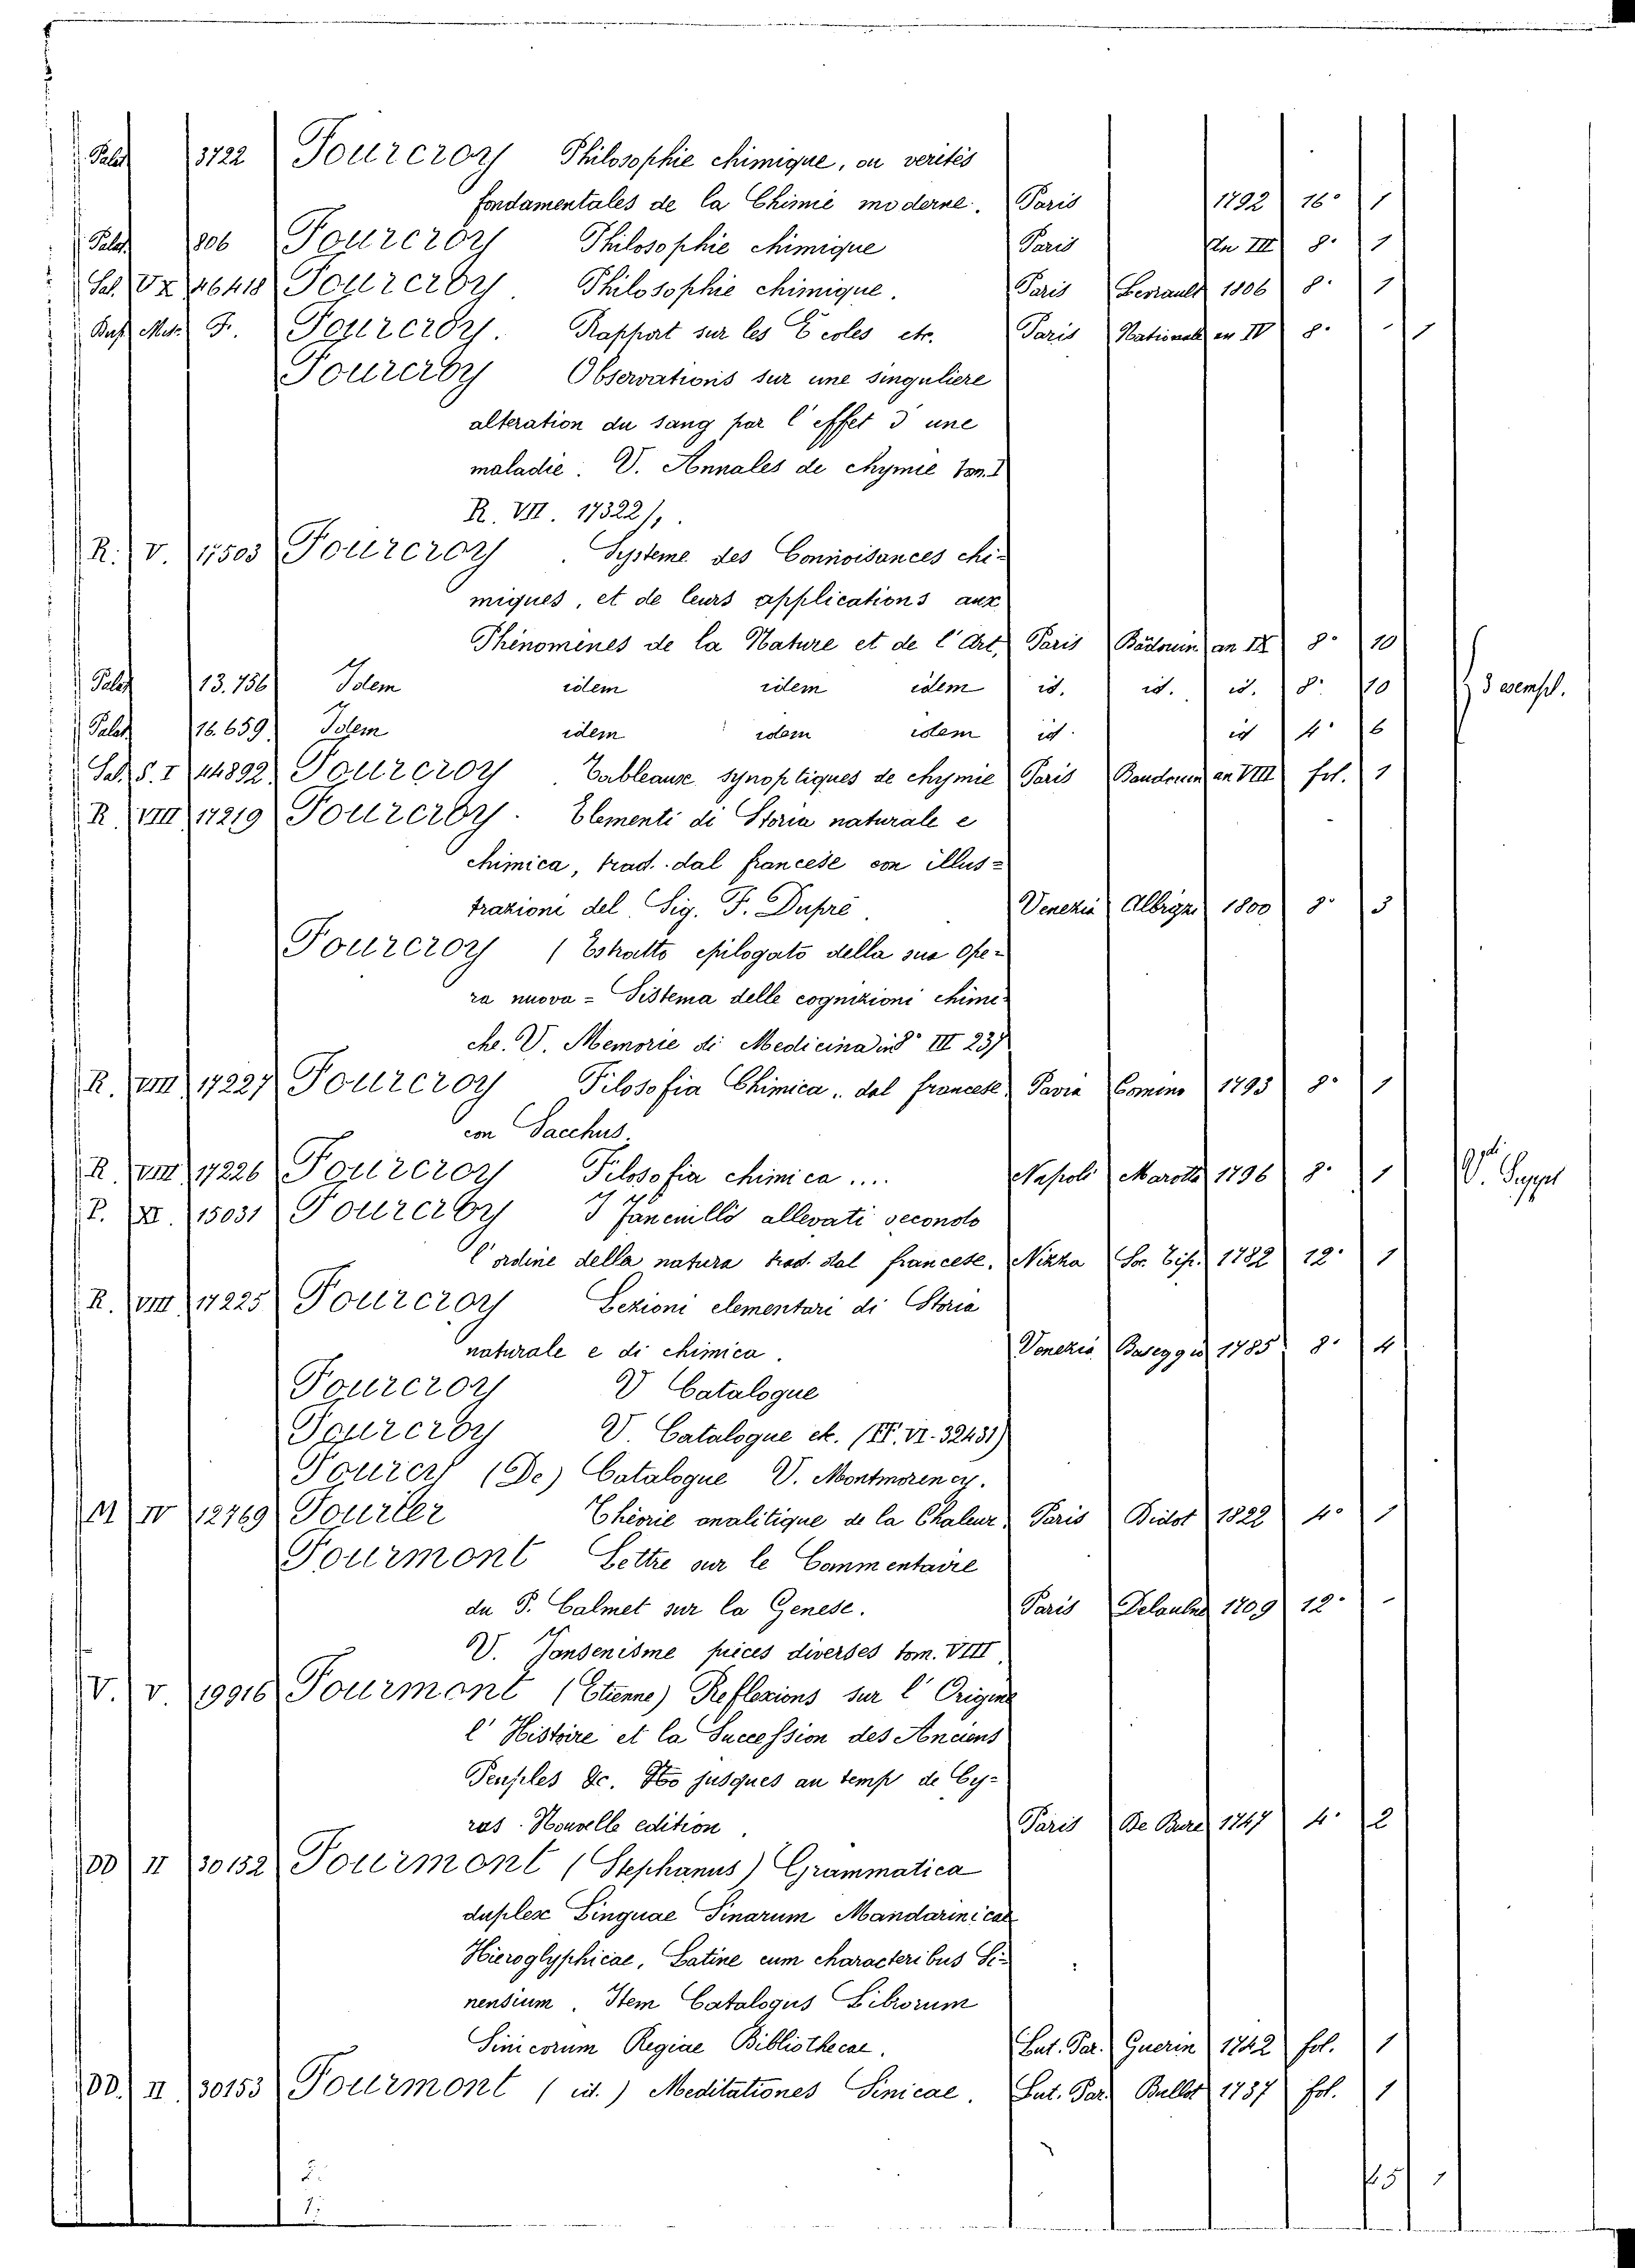 Palat 3722 Fourcroy Philosophie chimique, ou verités
fondamentales de la Chimie moderne. Paris 1792 16° 1
Palat 806 Fourcroy Philosophie chimique Paris An III 8° 1
Sal. Vx 46418 Fourcroy Philosophie chimique. Paris 1806 8° 1
F. Fourcroy. Rapport sur les Ecoles etc. Paris National an IV 8° 1
Fourcroy Observations sur une singuliere
alteration du sang par l'effet d'une
maladie. V. Annales de chymie tom. I
R. VII. 17322/,.
R. V. 17503 Fourcroy. Systeme des Connoisances chi-
miques, et de leurs applications aux
Phènomènes de la Nature et de l'Art, Paris an IX 8° 10
Palat 13.736 Idem idem idem idem id. id. id. 8° 10 3 esempl.
Palat 16.659. Idem idem idem idem id. id 4° 6
Sal. S. I 44892 Fourcroy. Tableaux synoptiques de chymie Paris Baudouin an VIII fol. 1
R. VIII 17219 Fourcroy. Elementi di Storia naturale e
chimica, trad. dal francese con illus-
trazioni del Sig. F. Dupré. Venezia Albrizzi 1800 8° 3
Fourcroy (Estratto epilogato della sua ope-
ra nuova = Sistema delle cognizioni chimi-
che. V. Memorie di Medicina in 8° III 237
R. VIII 17227 Fourcroy Filosofia Chimica, dal francese Pavia Comino 1793 8° 1
con Sacchus.
R. VIII 17226 Fourcroy Filosofia chimica.... Napoli Marotta 1796 8° 1
P. XI. 15031 Fourcroy I fanciulli allevati secondo
l'ordine della natura trad. dal francese. Nizza So. Tip. 1782 12° 1
R. VIII 17225 Fourcroy Lezioni elementari di Storia
naturale e di chimica. Venezia Baseggio 1785 8° 4
Fourcroy V Catalogue
Fourcroy V. Catalogue etc. (FF. VI. 32431)
Fourcy (De) Catalogue V. Montmorency.
M IV 12769 Fourier Théorie analitique de la Chaleur, Paris Didot 1822 4° 1
Fourmont Lettre sur le Commentaire
du P. Calmet sur la Genese. Paris Delaulne 1709 12° -
V. Jansenisme pieces diverses tom. VIII.
V. V. 19916 Fourmont (Etienne) Reflexions sur l'Origine
l'Histoire et la Succession des Anciens
Peuples &c. jusques au temps de Cy-
rus. Nouvelle edition. Paris De Bure 1747 4° 2
DD II 30152 Fourmont (Stephanus) Grammatica
duplex Linguae Sinarum Mandarinicae
Hieroglyphicae, Latine cum characteribus Si-
nensium. Item Catalogus Librorum
Sinicorum Regiae Bibliothecae. Lut. Par. Guerin 1742 fol. 1
DD. II 30153 Fourmont (id.) Meditationes Sinicae. Lut. Par. Bullot 1737 fol. 1
2.
1.